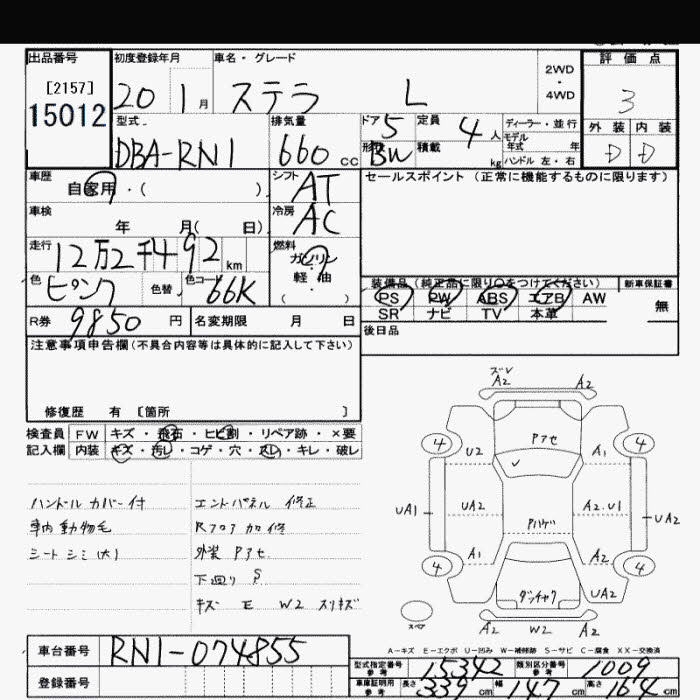 出品番号 初度登録年月 車名・グレード 2WD・4WD 評価点
[2157]
15012 20 1月 ステラ L 3
型式 排気量 ドア 5 定員 4人 ディーラー・並行 外装 内装
DBA-RN1 660cc 形状 BW 積載 kg モデル年式 年 ハンドル 左・右 D D
車歴 自家用・( ) シフト AT セールスポイント (正常に機能するものに限ります)
車検 年 月( 日) 冷房 AC
走行 12万2千492km 燃料 ガソリン・軽油 ( ・ )
色 ピンク 色替 色コード 66K 装備品 (純正品に限り○をつけてください) 新車保証書
PS PW ABS エアB AW 無
R券 9850円 名変期限 月 日 SR ナビ TV 本革
注意事項申告欄(不具合内容等は具体的に記入して下さい) 後日品
修復歴 有 [箇所 ]
検査員 FW キズ・飛石・ヒビ割・リペア跡・×要
記入欄 内装 キズ・汚レ・コゲ・穴・スレ・キレ・破レ
ハンドルカバー付 エンドパネル 修正
車内動物毛 Rフロア加修
シートシミ(大) 外装 Pアセ
下廻り S
キズ E W2 スリキズ
ズレ
A2 A2
4 Pアセ 4
U2 A1
UA1 UA2 Pハゲ A2.U1 UA2
A1 A2
4 4
ダッチャク UA2
スペア A2 W2 A2
A-キズ E-エクボ U-凹ミ W-補修跡 S-サビ C-腐食 XX-交換済
車台番号 RN1-074855
型式指定番号 参考 15342 類別区分番号 参考 1009
登録番号 車庫証明用 参考 長さ 339cm 幅 147cm 高さ 164cm